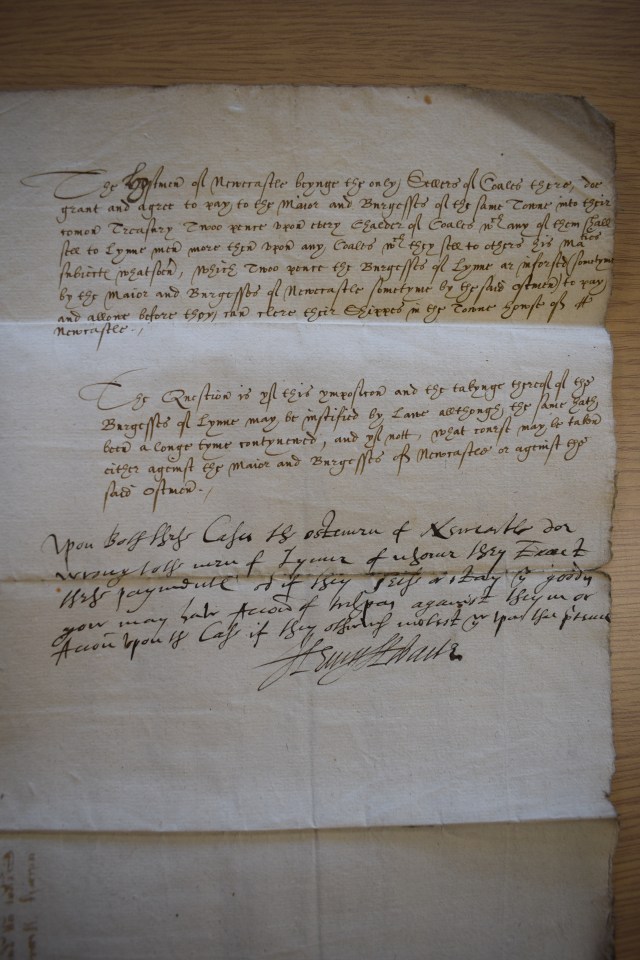 The Hostmen of Newcastle beynge the only Sellers of Coales there, doe
grant and agree to pay to the Maior and Burgesses of the same Towne into their
comon Treasury Twoo pence upon every Chalder of Coales wch any of them shall
sell to Lynne men more then upon any Coales wch they sell to others his Maties
subiects whatsoever, which Twoo pence the Burgesses of Lynne ar inforced sometyme
by the Maior and Burgesses of Newcastle sometyme by the said Ostmen to pay
and allowe before they can clere their Shippes in the Towne house of
Newcastle.
The Question is yf this ymposicon and the takynge thereof of the
Burgesses of Lynne may be iustified by Lawe although the same hath
been a longe tyme contynewed, and yf nott, what course may be taken
either against the Maior and Burgesses of Newcastle or against the
said Ostmen.
Upon both these Cases the ostemen of Newcastle doe
wronge to the men of Lynne of whome they Exact
these payments & if they or stay yr goods
you may have Accon of trespas against them or
Accon upon the Case if they otherwise molest yu upon this pretence
Henry